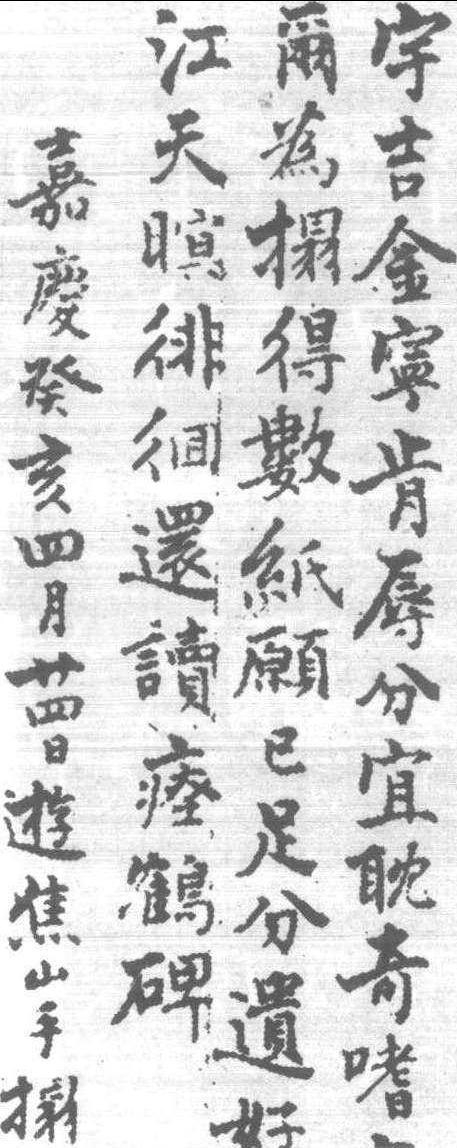 字吉金寧肯辱分宜耽奇嗜
爾為搨得數紙願已足分遺好
江天暝徘徊還讀瘞鶴碑
嘉慶癸亥四月廿四日遊焦山手搨